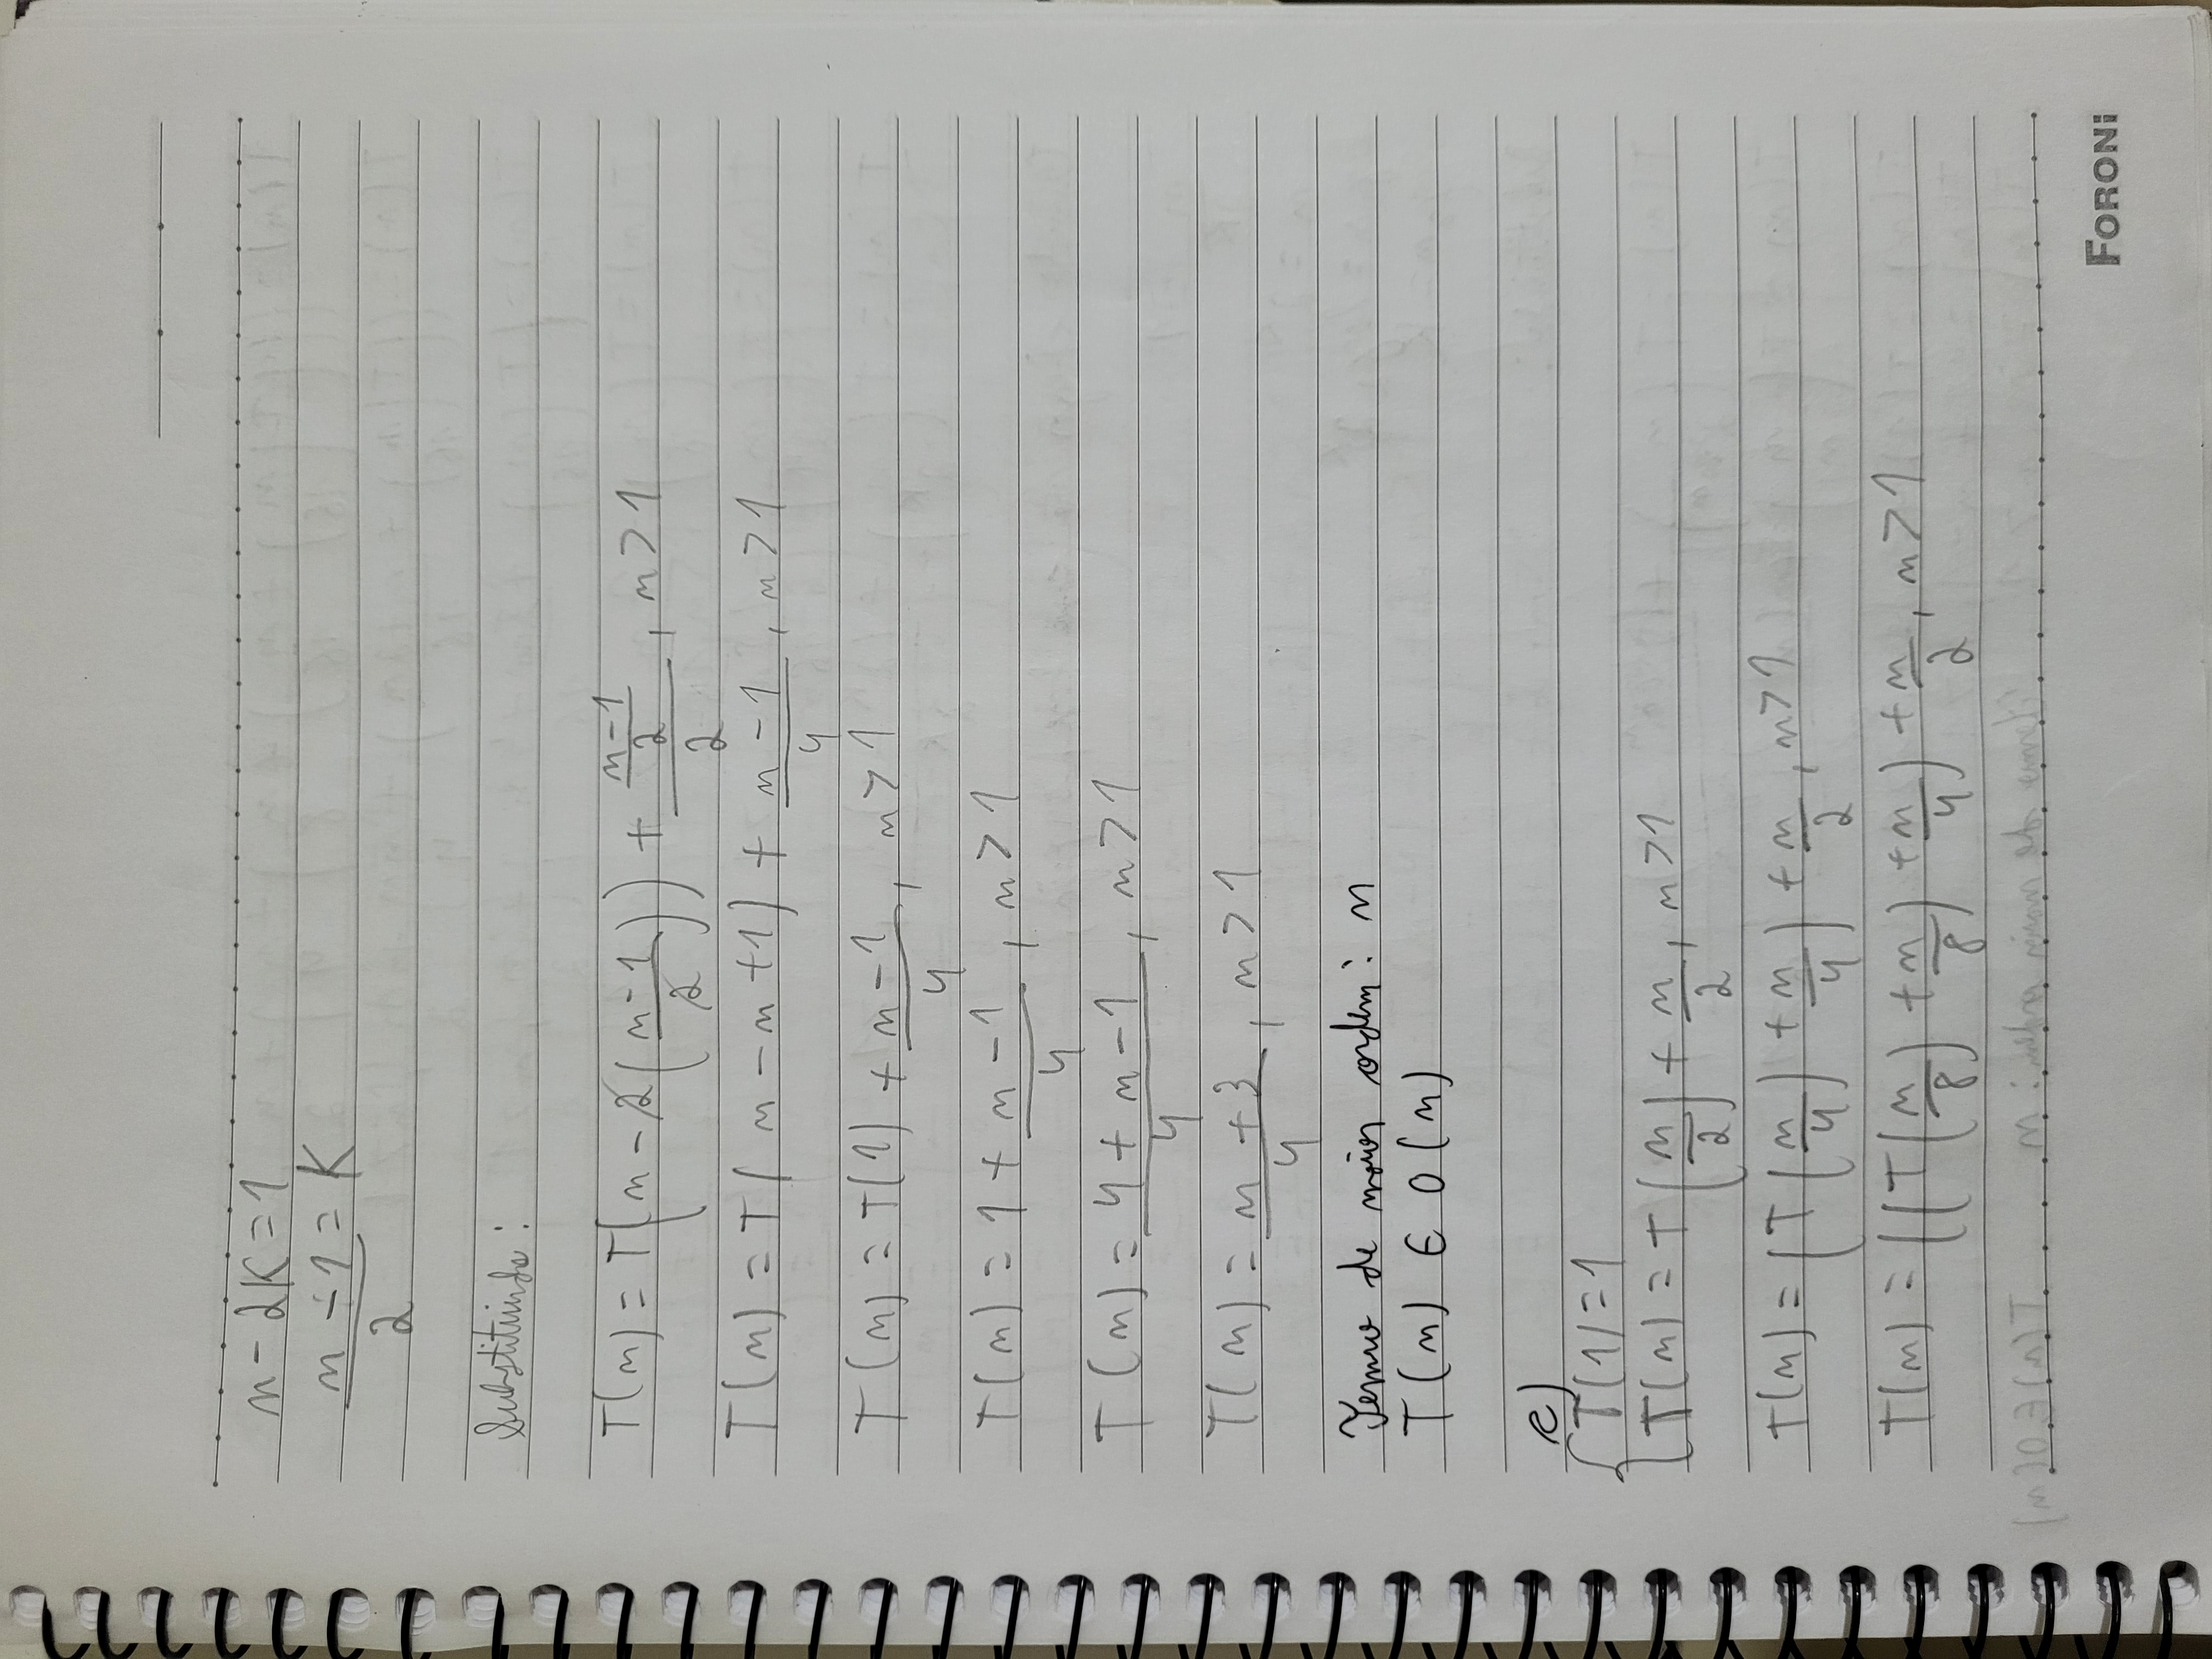 n - 2K = 1
(n - 1)/2 = K
Substituindo:
T(n) = T(n - 2((n-1)/2)) + ((n-1)/2)/2, n > 1
T(n) = T(n - n + 1) + (n - 1)/4, n > 1
T(n) = T(1) + (n - 1)/4, n > 1
T(n) = 1 + (n - 1)/4, n > 1
T(n) = (4 + n - 1)/4, n > 1
T(n) = (n + 3)/4, n > 1
Termo de maior ordem: n
T(n) ∈ O(n)
e)
{ T(1) = 1
T(n) = T(n/2) + n/2, n > 1
T(n) = (T(n/4) + n/4) + n/2, n > 1
T(n) = ((T(n/8) + n/8) + n/4) + n/2, n > 1
FORONI